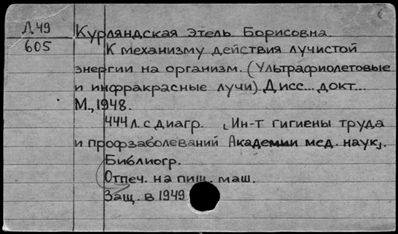 Д.49
605
Курляндская Этель Борисовна.
К механизму действия лучистой
энергии на организм. (Ультрафиолетовые
и инфракрасные лучи). Дисс... докт...
М., 1948.
444 л. с диагр. (Ин-т гигиены труда
и профзаболеваний Академии мед. наук).
Библиогр.
Отпеч. на пиш. маш.
Защ. в 1949